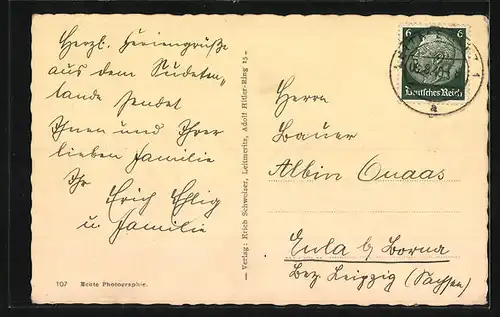 Herzl. Feriengrüße
aus dem Sudeten-
lande sendet
Ihnen und Ihrer
lieben Familie
Ihr
Erich
u. Familie
107 Echte Photographie.
— Verlag: Erich Schweizer, Leitmeritz, Adolf Hitler-Ring 15 —
6 6
Deutsches Reich
Herrn
Bauer
Albin Quaas
Eula b/ Borna
Bez. Leipzig (Sachsen)